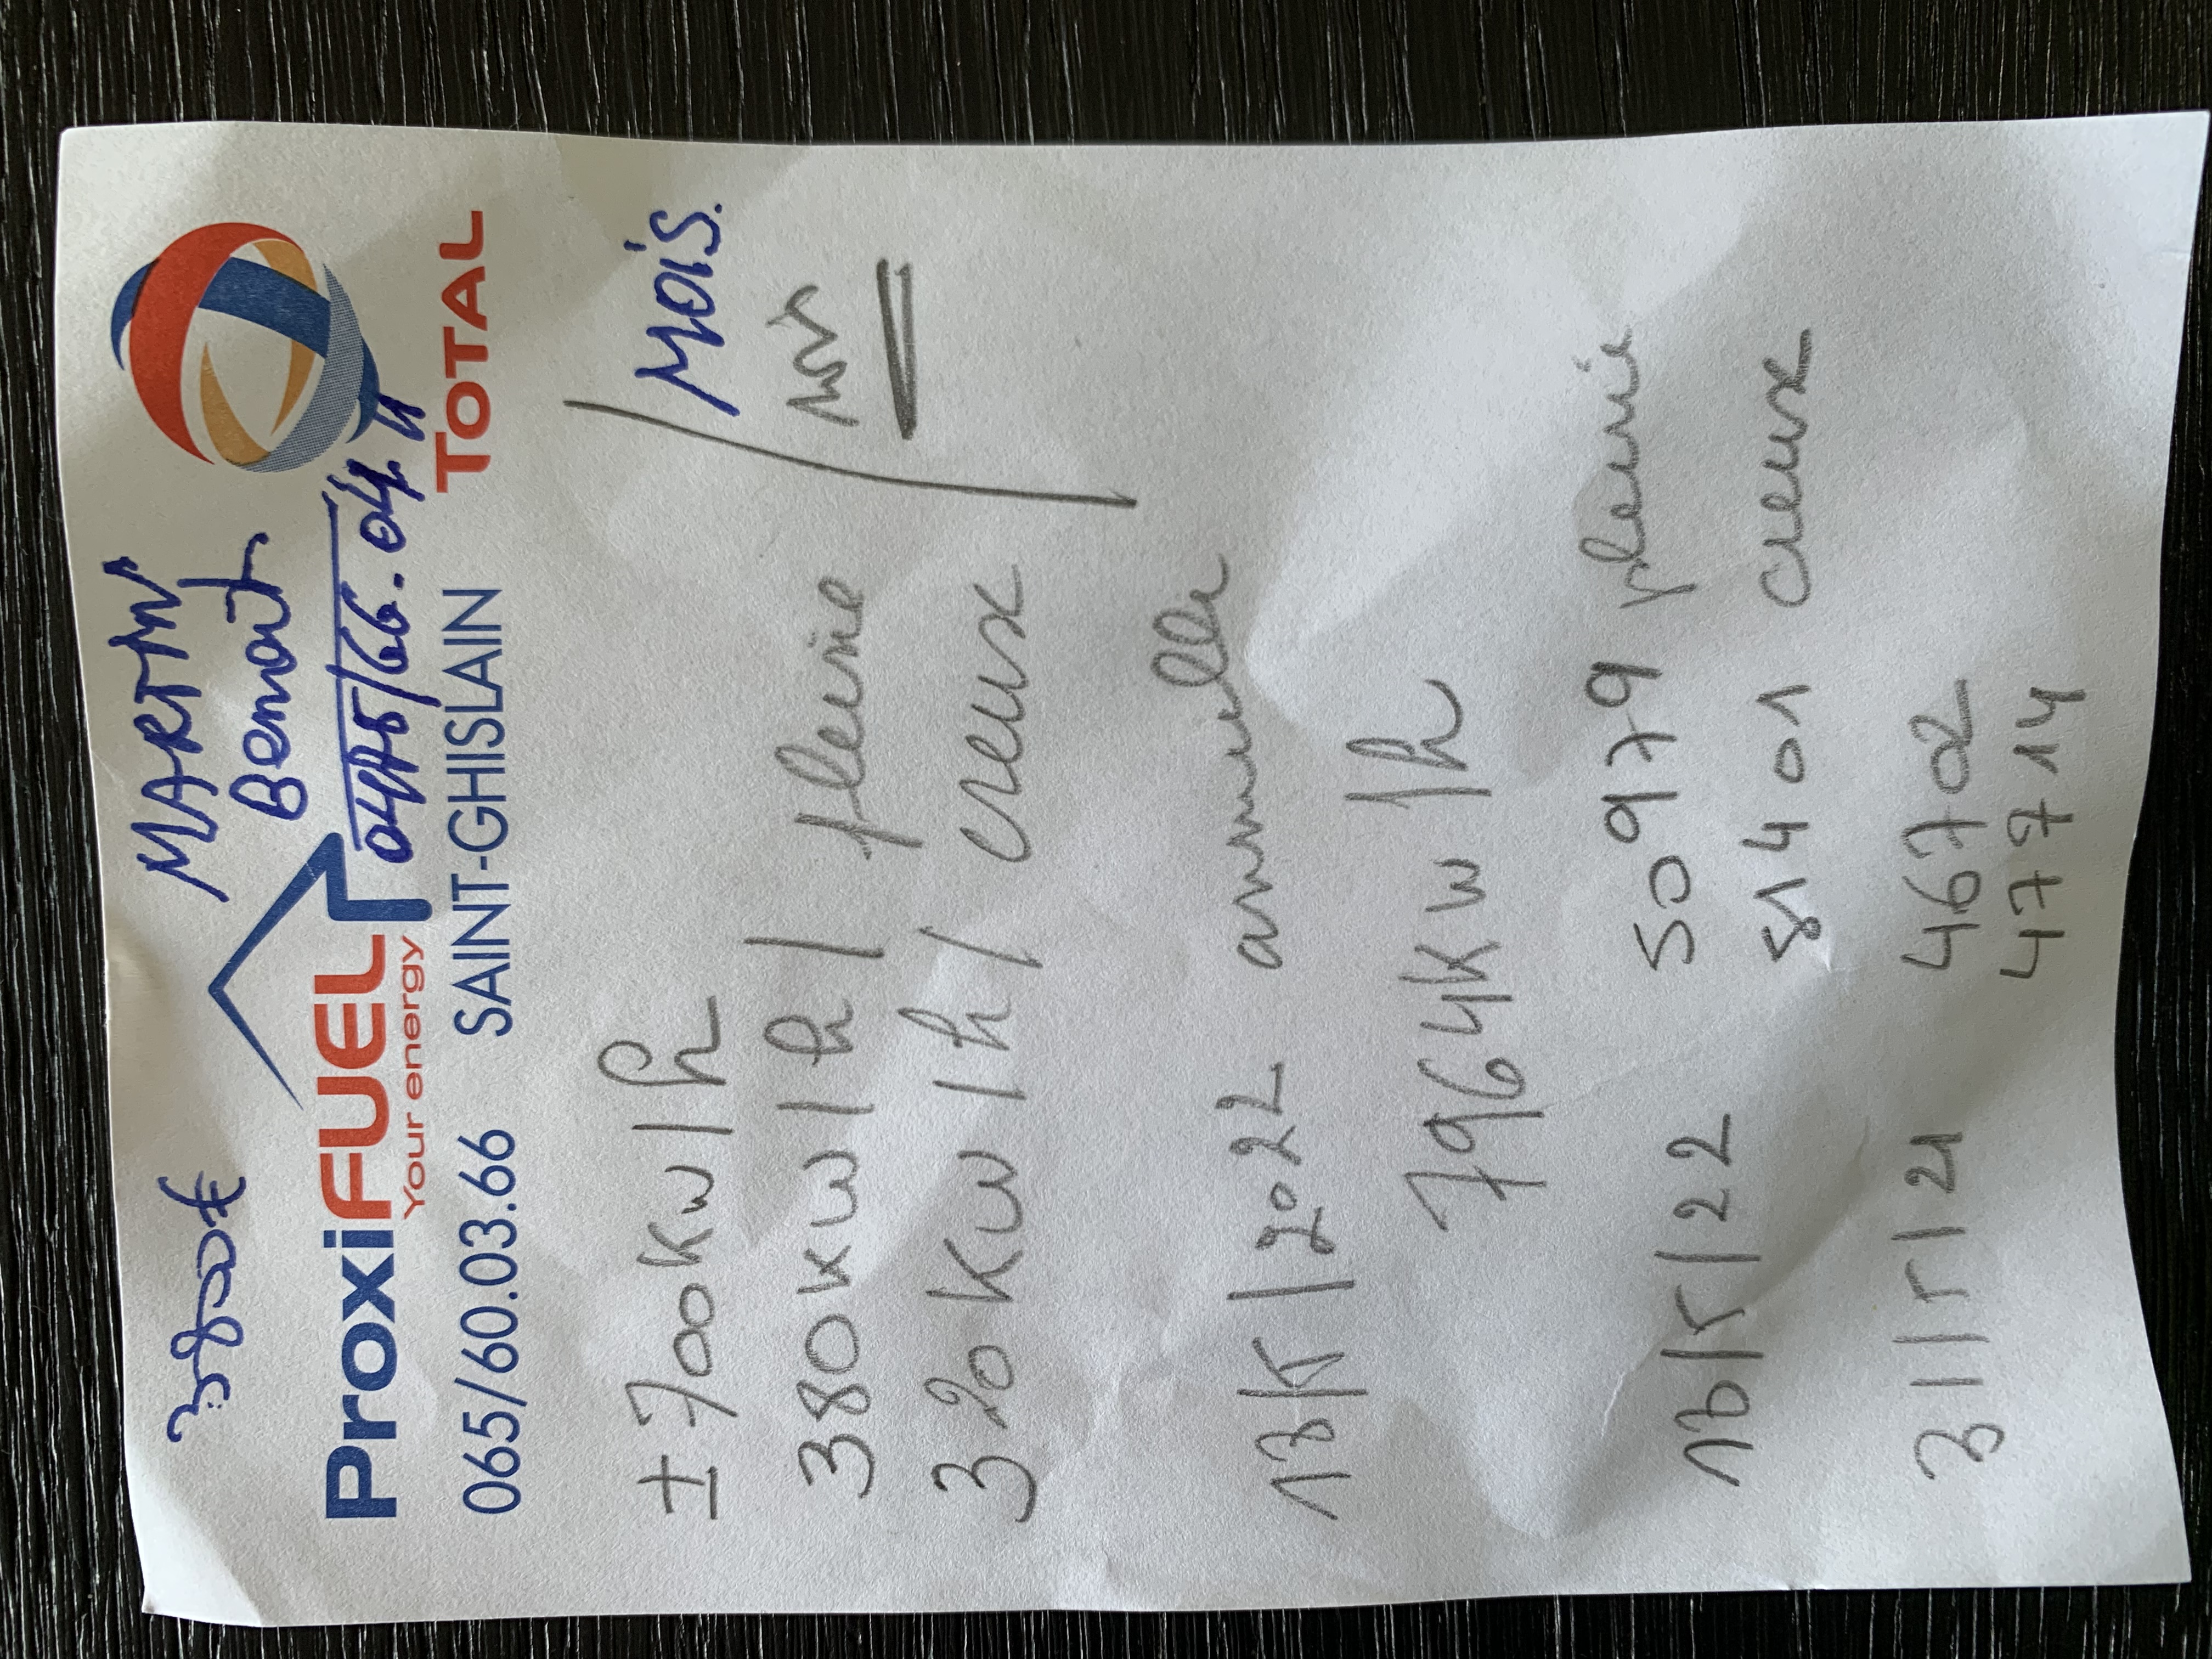 3800€ MARTIN
Benoit
ProxiFUEL 0475/66.04.11
Your energy
TOTAL
065/60.03.66 SAINT-GHISLAIN
± 700 Kw/h
/ Mois.
380 Kw/h / pleine
320 Kw/h / creux
18/5/2022 annuelle
7964 Kw/h
16/5/22 50979 pleine
51401 creux
31/5/21 46702
47714